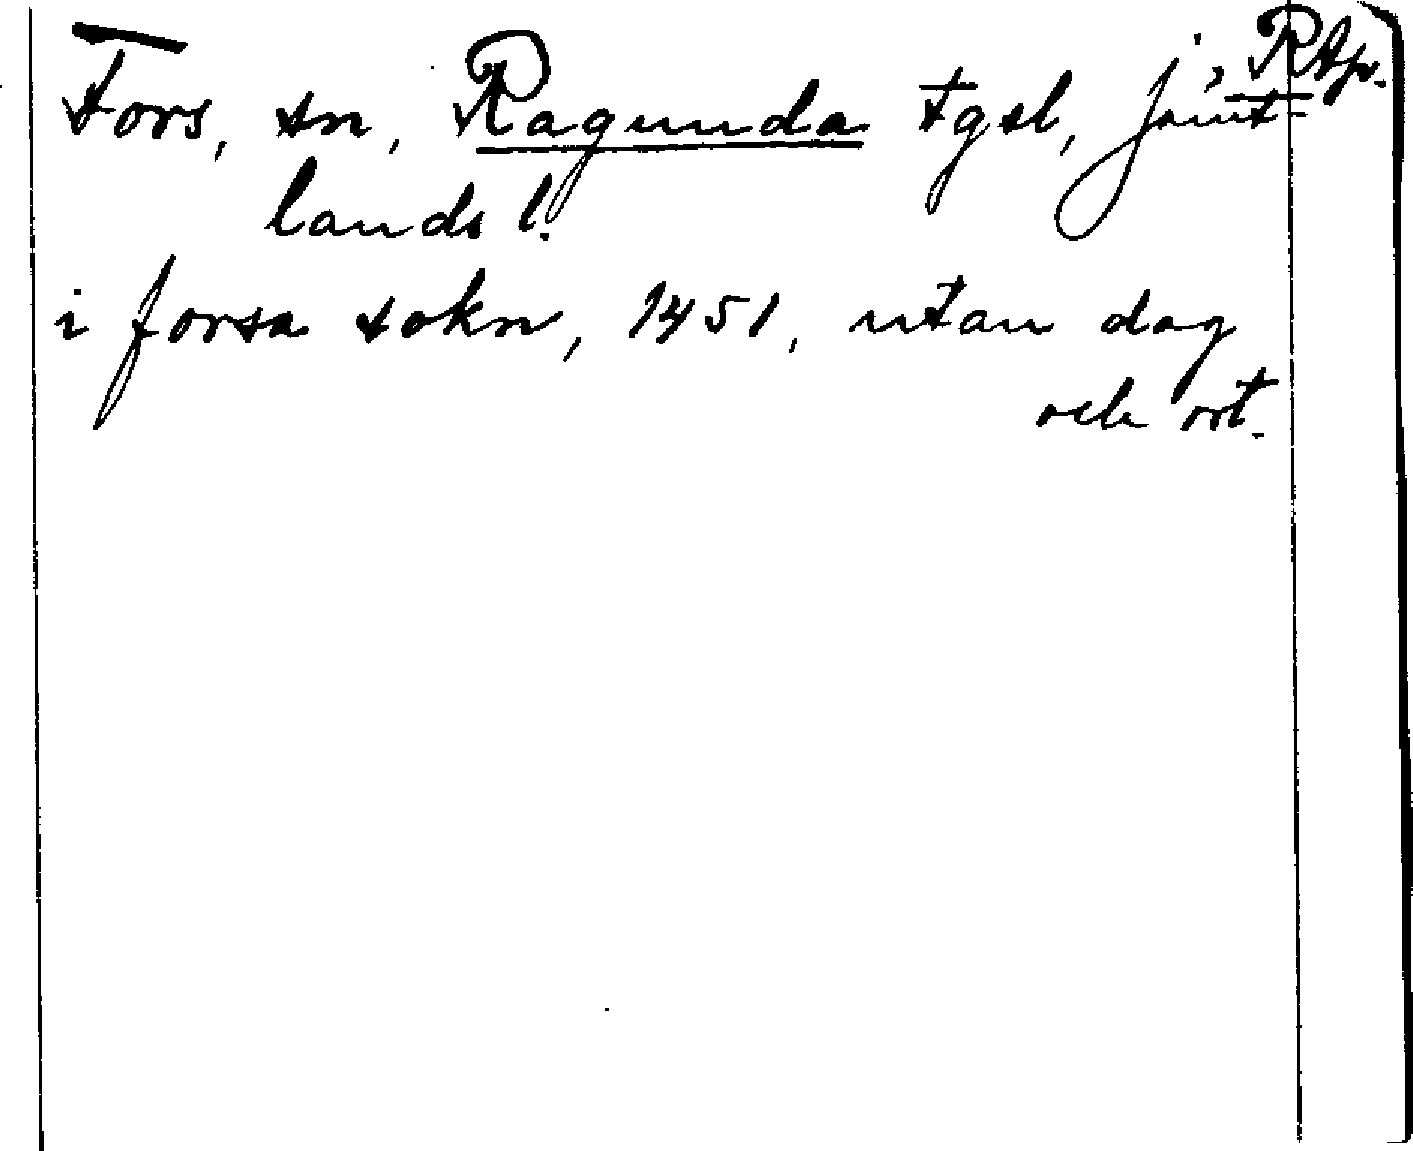 Rtp.
Fors, sn, Ragunda tgsl, Jämt-
lands l.
i forsa sokn, 1451, utan dag
och ort.